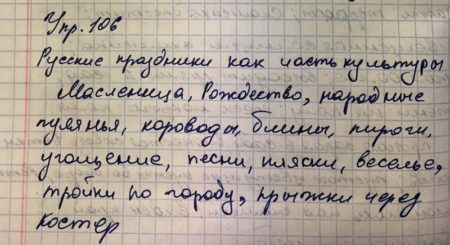 Упр. 106
Русские праздники как часть культуры
Масленица, Рождество, народные
гулянья, хороводы, блины, пироги,
угощение, песни, пляски, веселье,
тройки по городу, прыжки через
костер